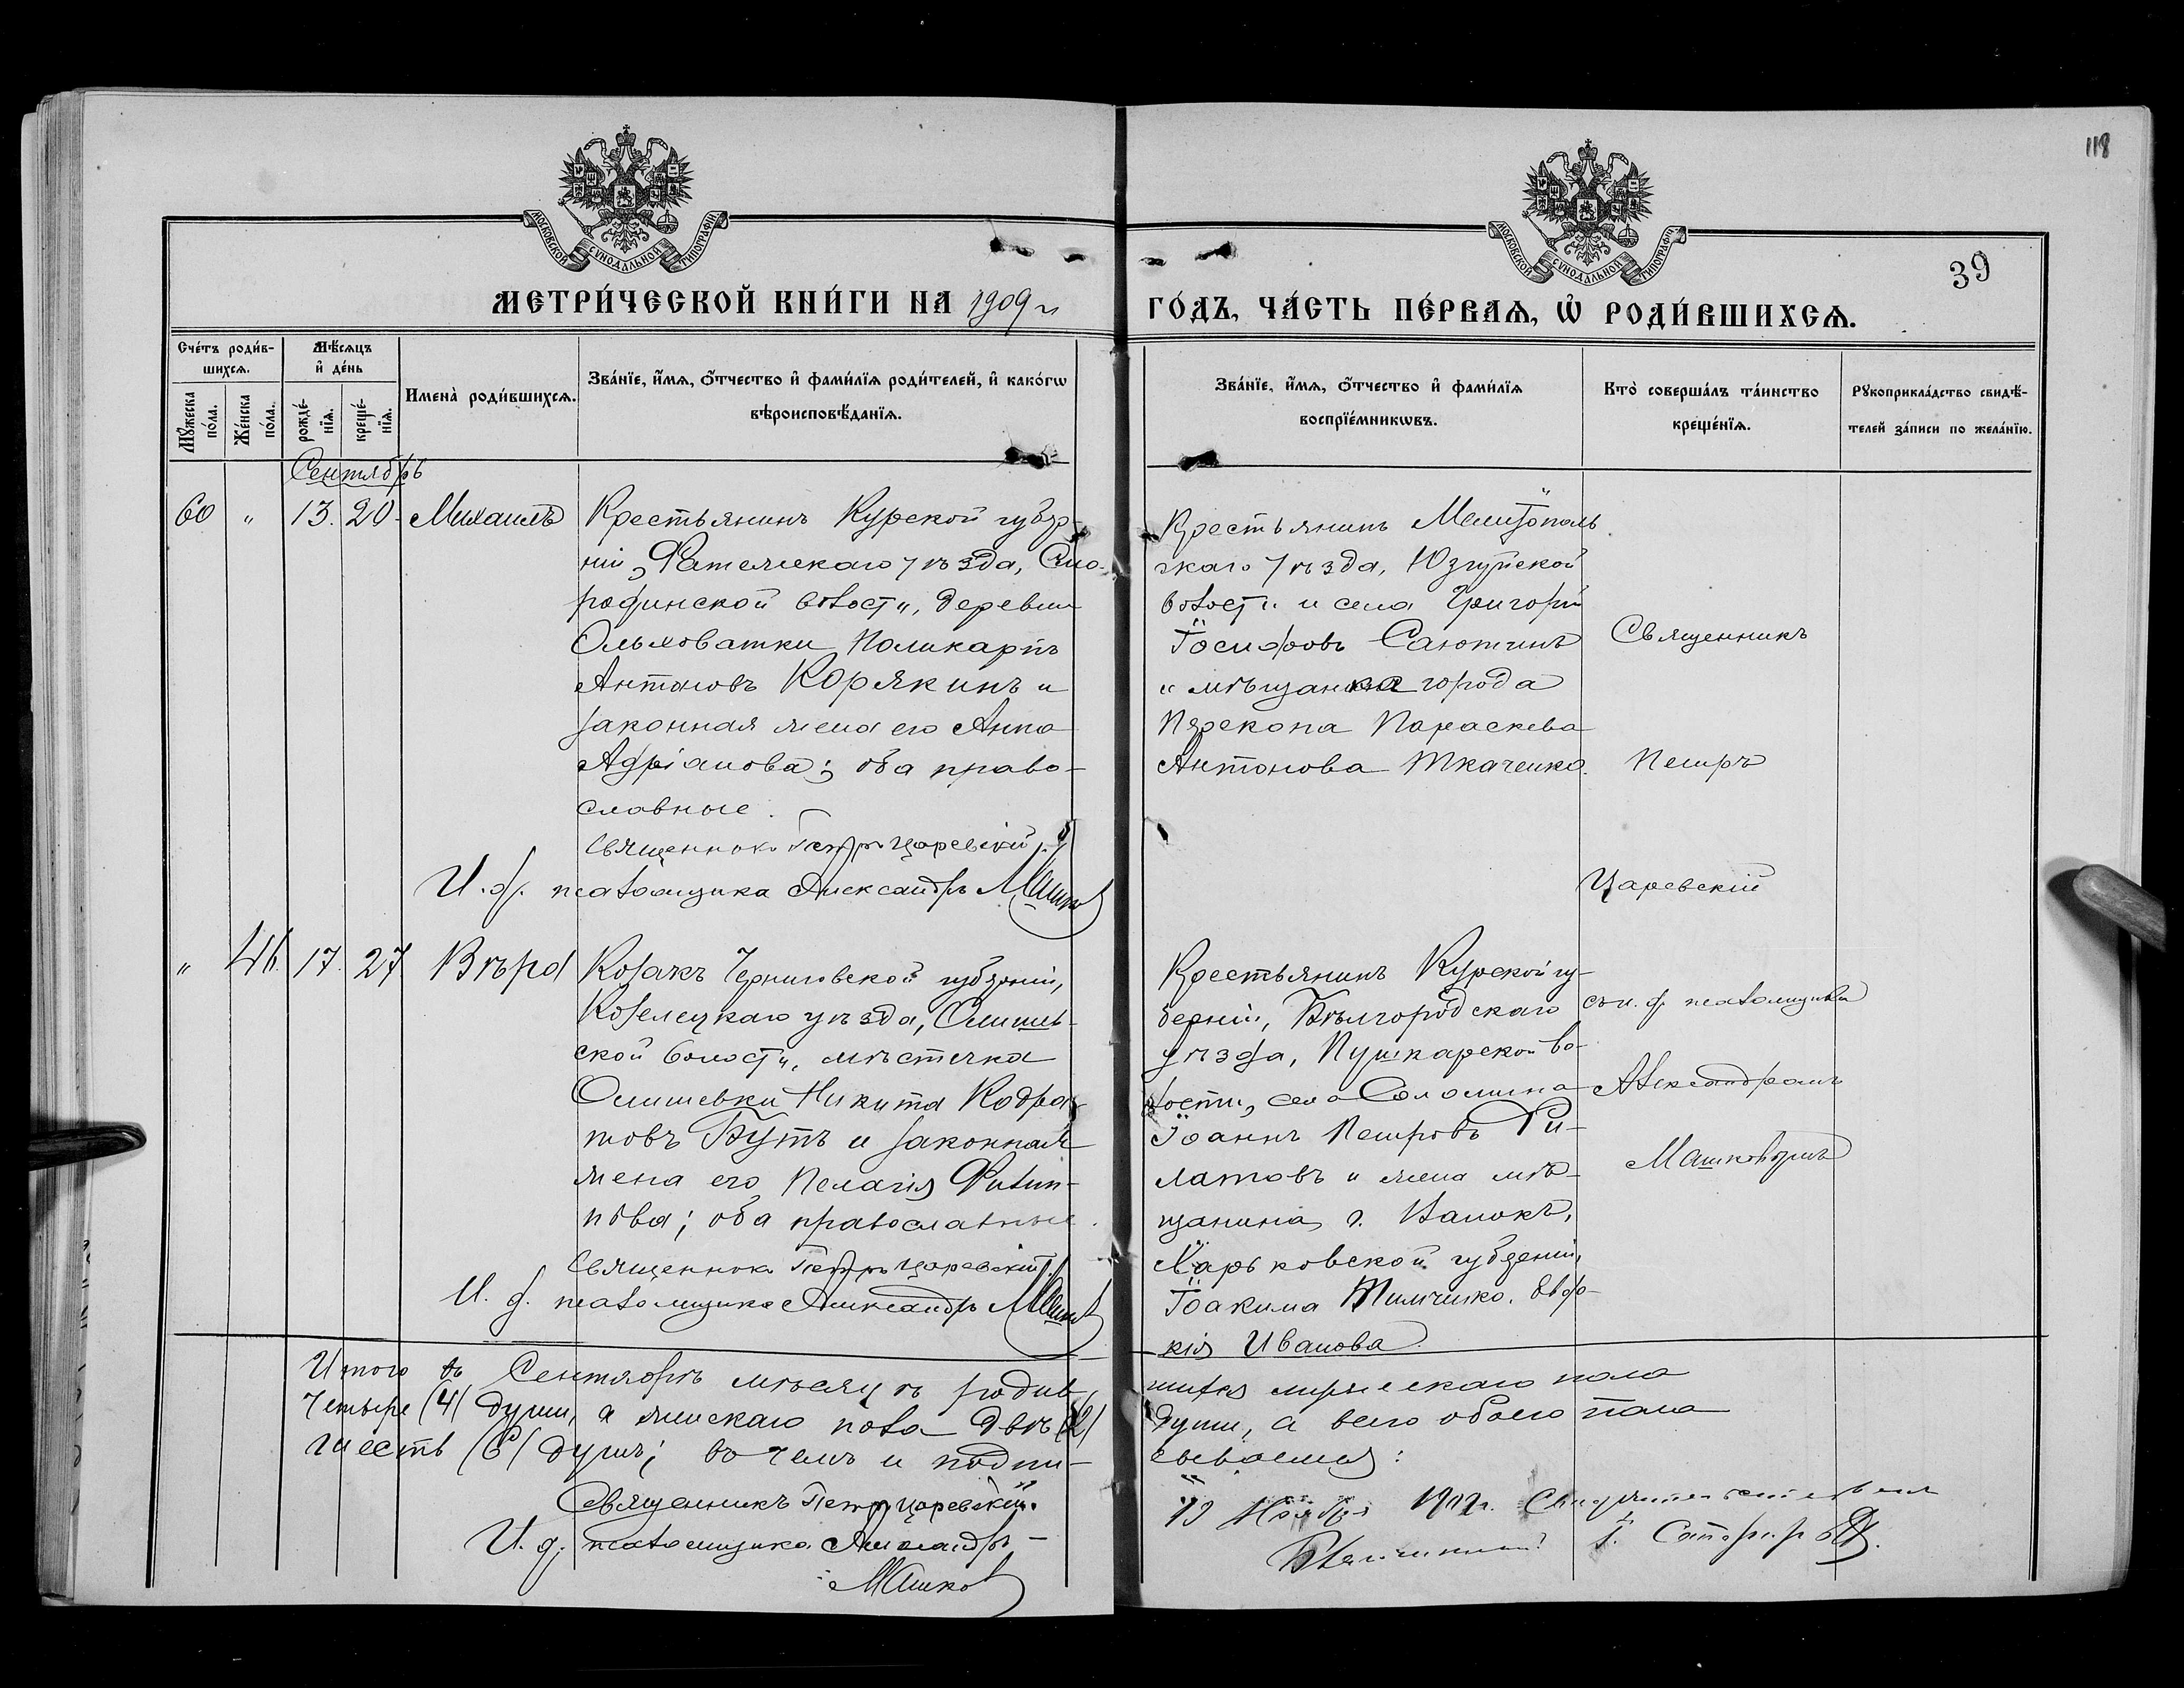 118
МОСКОВСКОЙ СѴНОДАЛЬНОЙ ТИПОГРАФІИ
МОСКОВСКОЙ СѴНОДАЛЬНОЙ ТИПОГРАФІИ
39
МЕТРИ́ЧЕСКОЙ КНИ́ГИ НА 1909 г.
ГО́ДЪ, ЧА́СТЬ ПЕ́РВАѦ, Ѡ҆ РОДИ́ВШИХСѦ.
Сче́тъ роди́в-
шихсѧ.
Мѣ́сѧцъ
и҆ де́нь
Мꙋ́жеска
по́ла.
Же́нска
по́ла.
рожде́-
нїѧ.
креще́-
нїѧ.
Имена̀ роди́вшихсѧ.
Зва́нїе, и҆́мѧ, ѻ҆́тчество и҆ фами́лїѧ роди́телей, и҆ како́гѡ
вѣроисповѣ́данїѧ.
Зва́нїе, и҆́мѧ, ѻ҆́тчество и҆ фами́лїѧ
воспрїе́мникѡвъ.
Кто̀ соверша́лъ та́инство
креще́нїѧ.
Рꙋкоприкла́дство свидѣ́-
телей за́писи по жела́нїю.
Сентябрь
60 " 13. 20. Михаилъ
Крестьянинъ Курской губер-
ніи, Фатежскаго уѣзда, Смо-
родинской волости, деревни
Ольховатки Поликарпъ
Антоновъ Корякинъ и
законная жена его Анна
Адріанова; оба право-
славные.
Священникъ Петръ Царевскій.
И. д. псаломщика Александръ Машков
Крестьянинъ Мелитополь
скаго уѣзда, Юзкуйской
волости и села Григорій
Іосифовъ Саютинъ
и мѣщанка города
Перекопа Параскева
Антонова Ткаченко.
Священникъ
Петръ
Царевскій
" 46. 17. 27 Вѣра
Козакъ Черниговской губерніи,
Козелецкаго уѣзда, Олишев-
ской волости, мѣстечка
Олишевки Никита Кодра-
товъ Бутъ и законная
жена его Пелагія Филип-
пова; оба православные.
Священникъ Петръ Царевскій.
И. д. псаломщика Александръ Машков
Крестьянинъ Курской гу-
берніи, Бѣлгородскаго
уѣзда, Пушкарской во-
лости, села Соломина
Іоаннъ Петровъ Фи-
латовъ и жена мѣ-
щанина г. Валокъ,
Харьковской губерніи,
Іоакима Тимченко. Евдо-
кія Иванова.
съ и. д. псаломщика
Александромъ
Машковымъ
Итого въ Сентябрѣ мѣсяцѣ родив-
шихся мужескаго пола
Четыре (4) души, а женскаго пола двѣ (2)
души, а всего обоего пола
шесть (6) душъ; въ чемъ и подпи-
сываемся:
Священникъ Петръ Царевскій.
И. д. псаломщика Александръ
Машков
Ноября